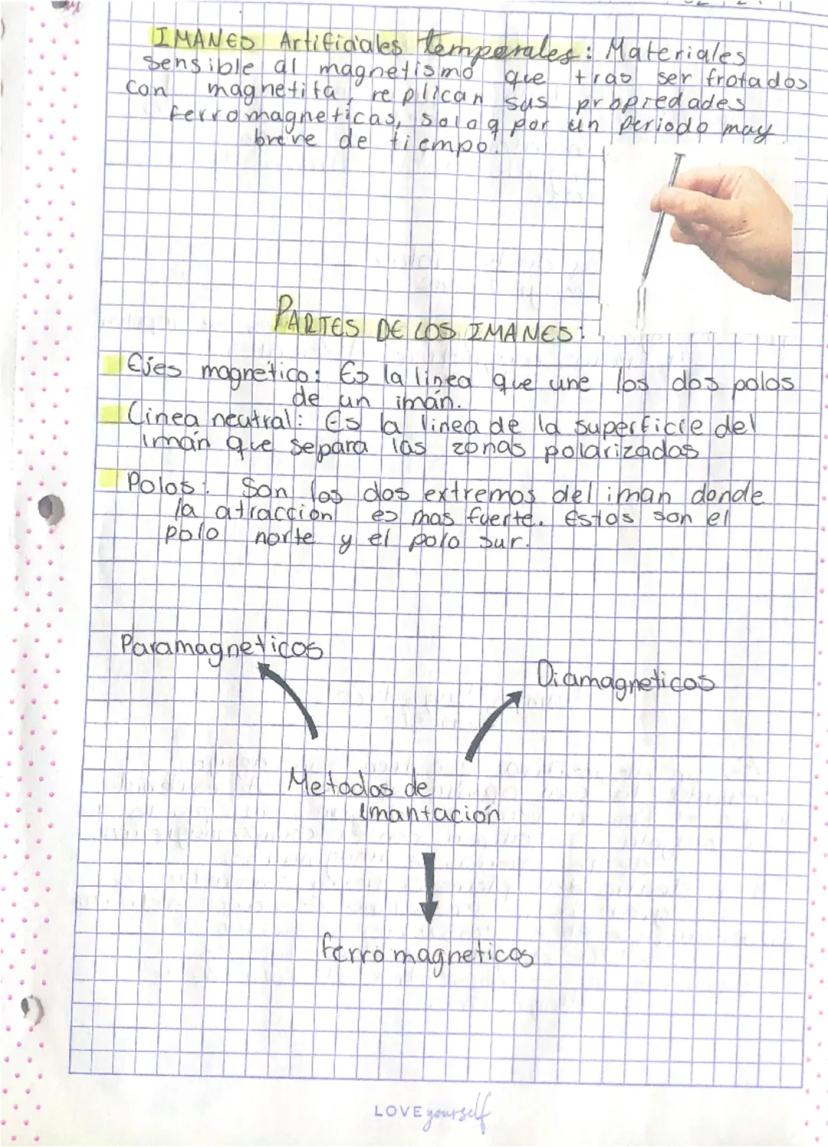 IMANES Artificiales temporales: Materiales
sensible al magnetismo que tras ser frotados
con magnetita, replican sus propiedades
ferromagneticas, solo q por un periodo muy
breve de tiempo.
PARTES DE LOS IMANES:
Ejes magnético: Es la linea que une los dos polos
de un imán.
Linea neutral: Es la linea de la superficie del
imán que separa las zonas polarizadas
Polos: Son los dos extremos del iman donde
la atracción es mas fuerte. Estos son el
polo norte y el polo sur.
Paramagneticos
Diamagneticos
Metodos de
imantación
ferro magneticos
LOVE yourself